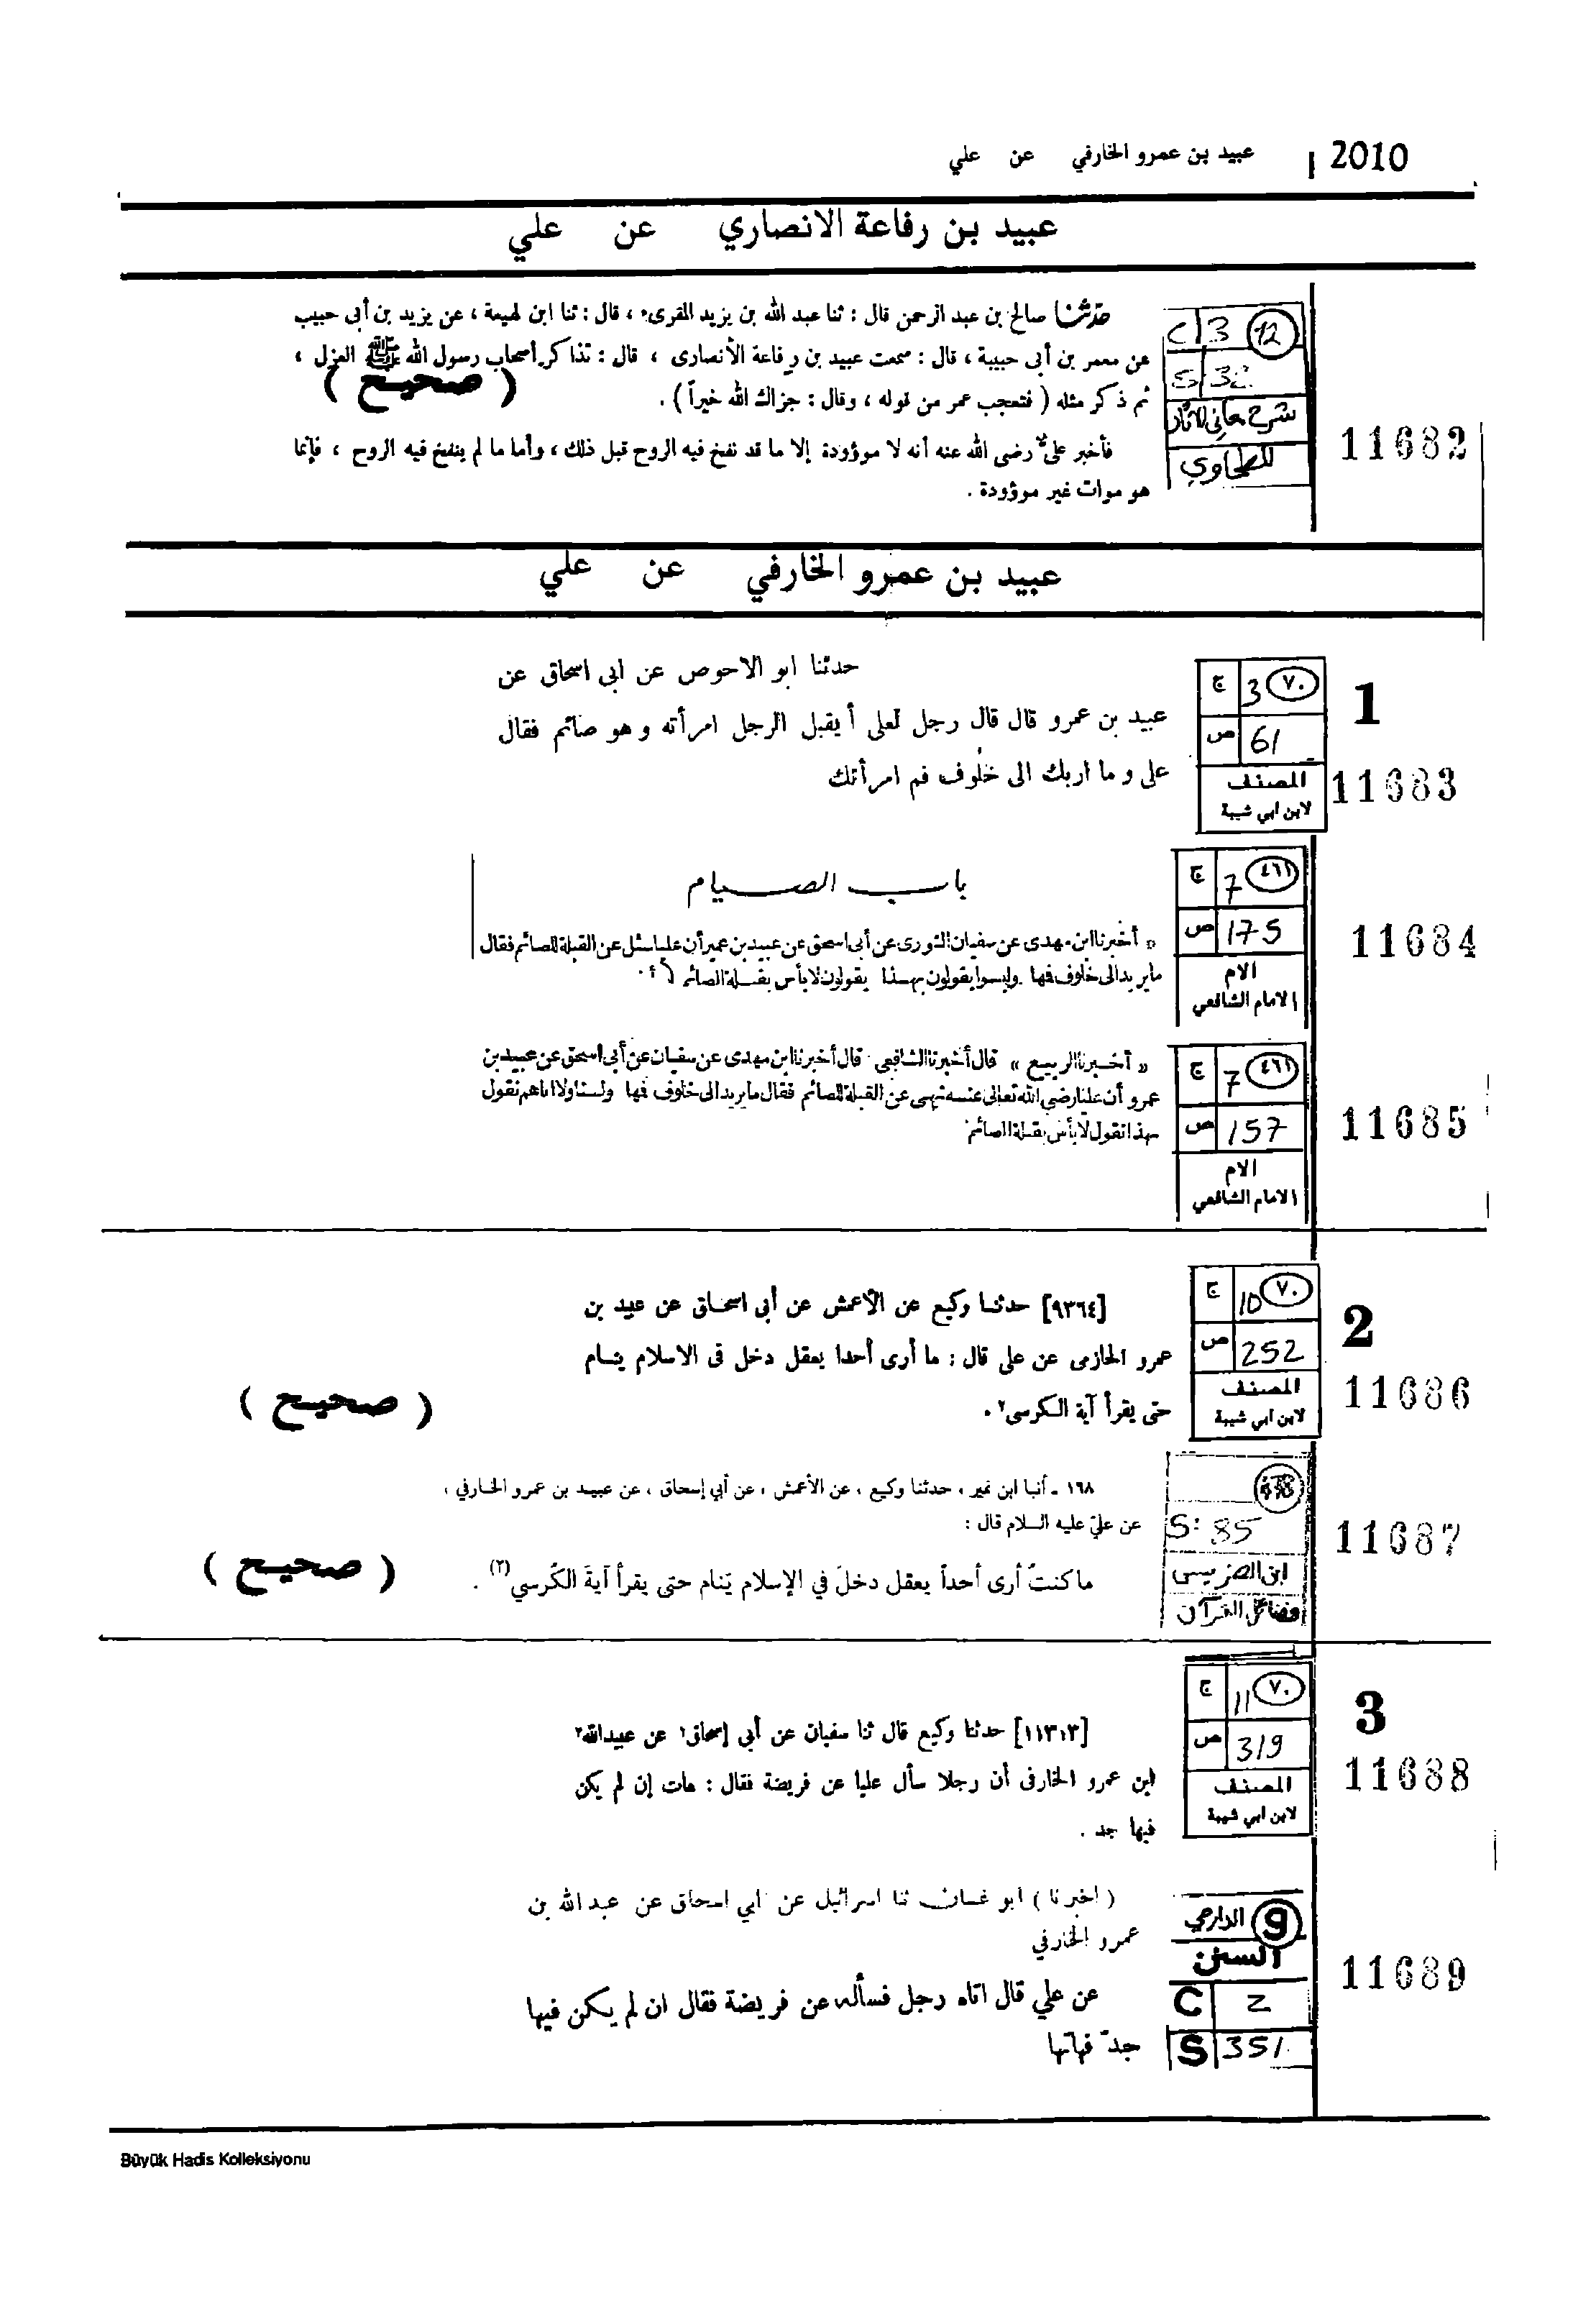 2010 عبيد بن عمرو الخارفي عن علي
عبيد بن رفاعة الانصاري عن علي
حدثنا صالح بن عبد الرحمن قال : ثنا عبد الله بن يزيد المقرىء ، قال : ثنا ابن لهيعة ، عن يزيد بن أبى حبيب
عن معمر بن أبى حبيبة ، قال : سمعت عبيد بن رفاعة الأنصارى ، قال : تذاكر أصحاب رسول الله ﷺ العزل ،
ثم ذكر مثله ( فتعجب عمر من قوله ، وقال : جزاك الله خيراً ) .
( صحيح )
فأخبر علىّ رضى الله عنه أنه لا موؤودة إلا ما قد نفخ فيه الروح قبل ذلك ، وأما ما لم ينفخ فيه الروح ، فإنما
هو موات غير موؤودة .
C 3 12
S 32
شرح معاني الآثار
للطحاوي
11682
عبيد بن عمرو الخارفي عن علي
1
حدثنا ابو الاحوص عن ابى اسحاق عن
عبيد بن عمرو قال قال رجل لعلى أيقبل الرجل امرأته وهو صائم فقال
على وما اربك الى خلُوف فم امرأتك
ج 3 ٧٠
ص 61
المصنف
لابن ابي شيبة
11683
باب الصيام
« أخبرنا ابن مهدى عن سفيان الثورى عن أبى اسحق عن عبيد بن عمير أن عليا سئل عن القبلة للصائم فقال
ما يريد الى خلوف فها وليسوا يقولون بهذا يقولون لا بأس بقبلة الصائم
ج 7 ٤٦١
ص 175
الام
الامام الشافعي
11684
« أخبرنا الربيع » قال أخبرنا الشافعي قال أخبرنا ابن مهدى عن سفيان عن أبى اسحق عن عبيد بن
عمرو أن عليا رضى الله تعالى عنه نهى عن القبلة للصائم فقال ما يريد الى خلوف فها ولسنا ولا اياهم نقول
بهذا نقول لا بأس بقبلة الصائم
ج 7 ٤٦١
ص 157
الام
الامام الشافعي
11685
2
[٩٣٦٤] حدثنا وكيع عن الأعمش عن أبى اسحاق عن عبيد بن
عمرو الخازمى عن على قال : ما أرى أحدا يعقل دخل فى الاسلام ينام
حتى يقرأ آية الكرسى٢ .
( صحيح )
ج 10 ٧٠
ص 252
المصنف
لابن ابي شيبة
11686
١٦٨ - أنبا ابن نمير ، حدثنا وكيع ، عن الأعمش ، عن أبي إسحاق ، عن عبيد بن عمرو الخارفي ،
عن عليّ عليه السلام قال :
ما كنتُ أرى أحداً يعقل دخلَ في الإسلام يَنام حتى يقرأ آيةَ الكُرسي(٢) .
( صحيح )
S: 85
ابن الضريس
فضائل القرآن
11687
3
[١١٣٠٣] حدثنا وكيع قال ثنا سفيان عن أبي إسحاق١ عن عبيدالله٢
ابن عمرو الخارفى أن رجلا سأل عليا عن فريضة فقال : هات إن لم يكن
فيها جد .
ج 11 ٧٠
ص 319
المصنف
لابن ابي شيبة
11688
( اخبرنا ) ابو غسان ثنا اسرائيل عن ابي اسحاق عن عبد الله بن
عمرو الخارفي
عن علي قال اتاه رجل فسأله عن فريضة فقال ان لم يكن فيها
جدّ فهاتها
9 الدارمي
السنن
C 2
S 351
11689
Büyük Hadis Kolleksiyonu